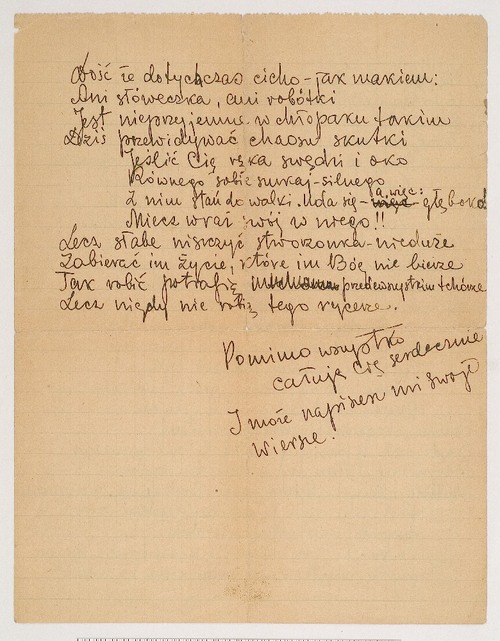 Dość że dotychczas cicho - jak makiem:
Ani słóweczka, ani robótki
Jest nieprzyjemnie w chłopaku takim
Dziś przewidywać chaosu skutki
Jeślić Cię ręka swędzi i oko
Równego sobie szukaj - silnego
a, więc:
Z nim stań do walki. Uda się - więc głęboko
Miecz wraź swój w niego!!
Lecz słabe niszczyć stworzonka - nieduże
Zabierać im życie, które im Bóg nie bierze
Tak robić potrafią przedewszystkim tchórze
Lecz nigdy nie robią tego rycerze.
Pomimo wszystko
całuję Cię serdecznie
I może napiszesz mi swoje
wiersze.